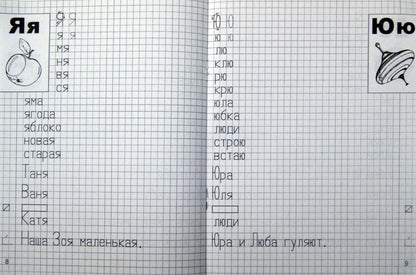 Яя
Я Я
я я
мя
ня
вя
ся
яма
ягода
яблоко
новая
старая
Таня
Ваня
Катя
Наша Зоя маленькая.
8
Юю
Ю Ю
ю ю
лю
клю
рю
крю
юла
юбка
люди
строю
встаю
Юра
Юля
люди
Юра и Люба гуляют.
9